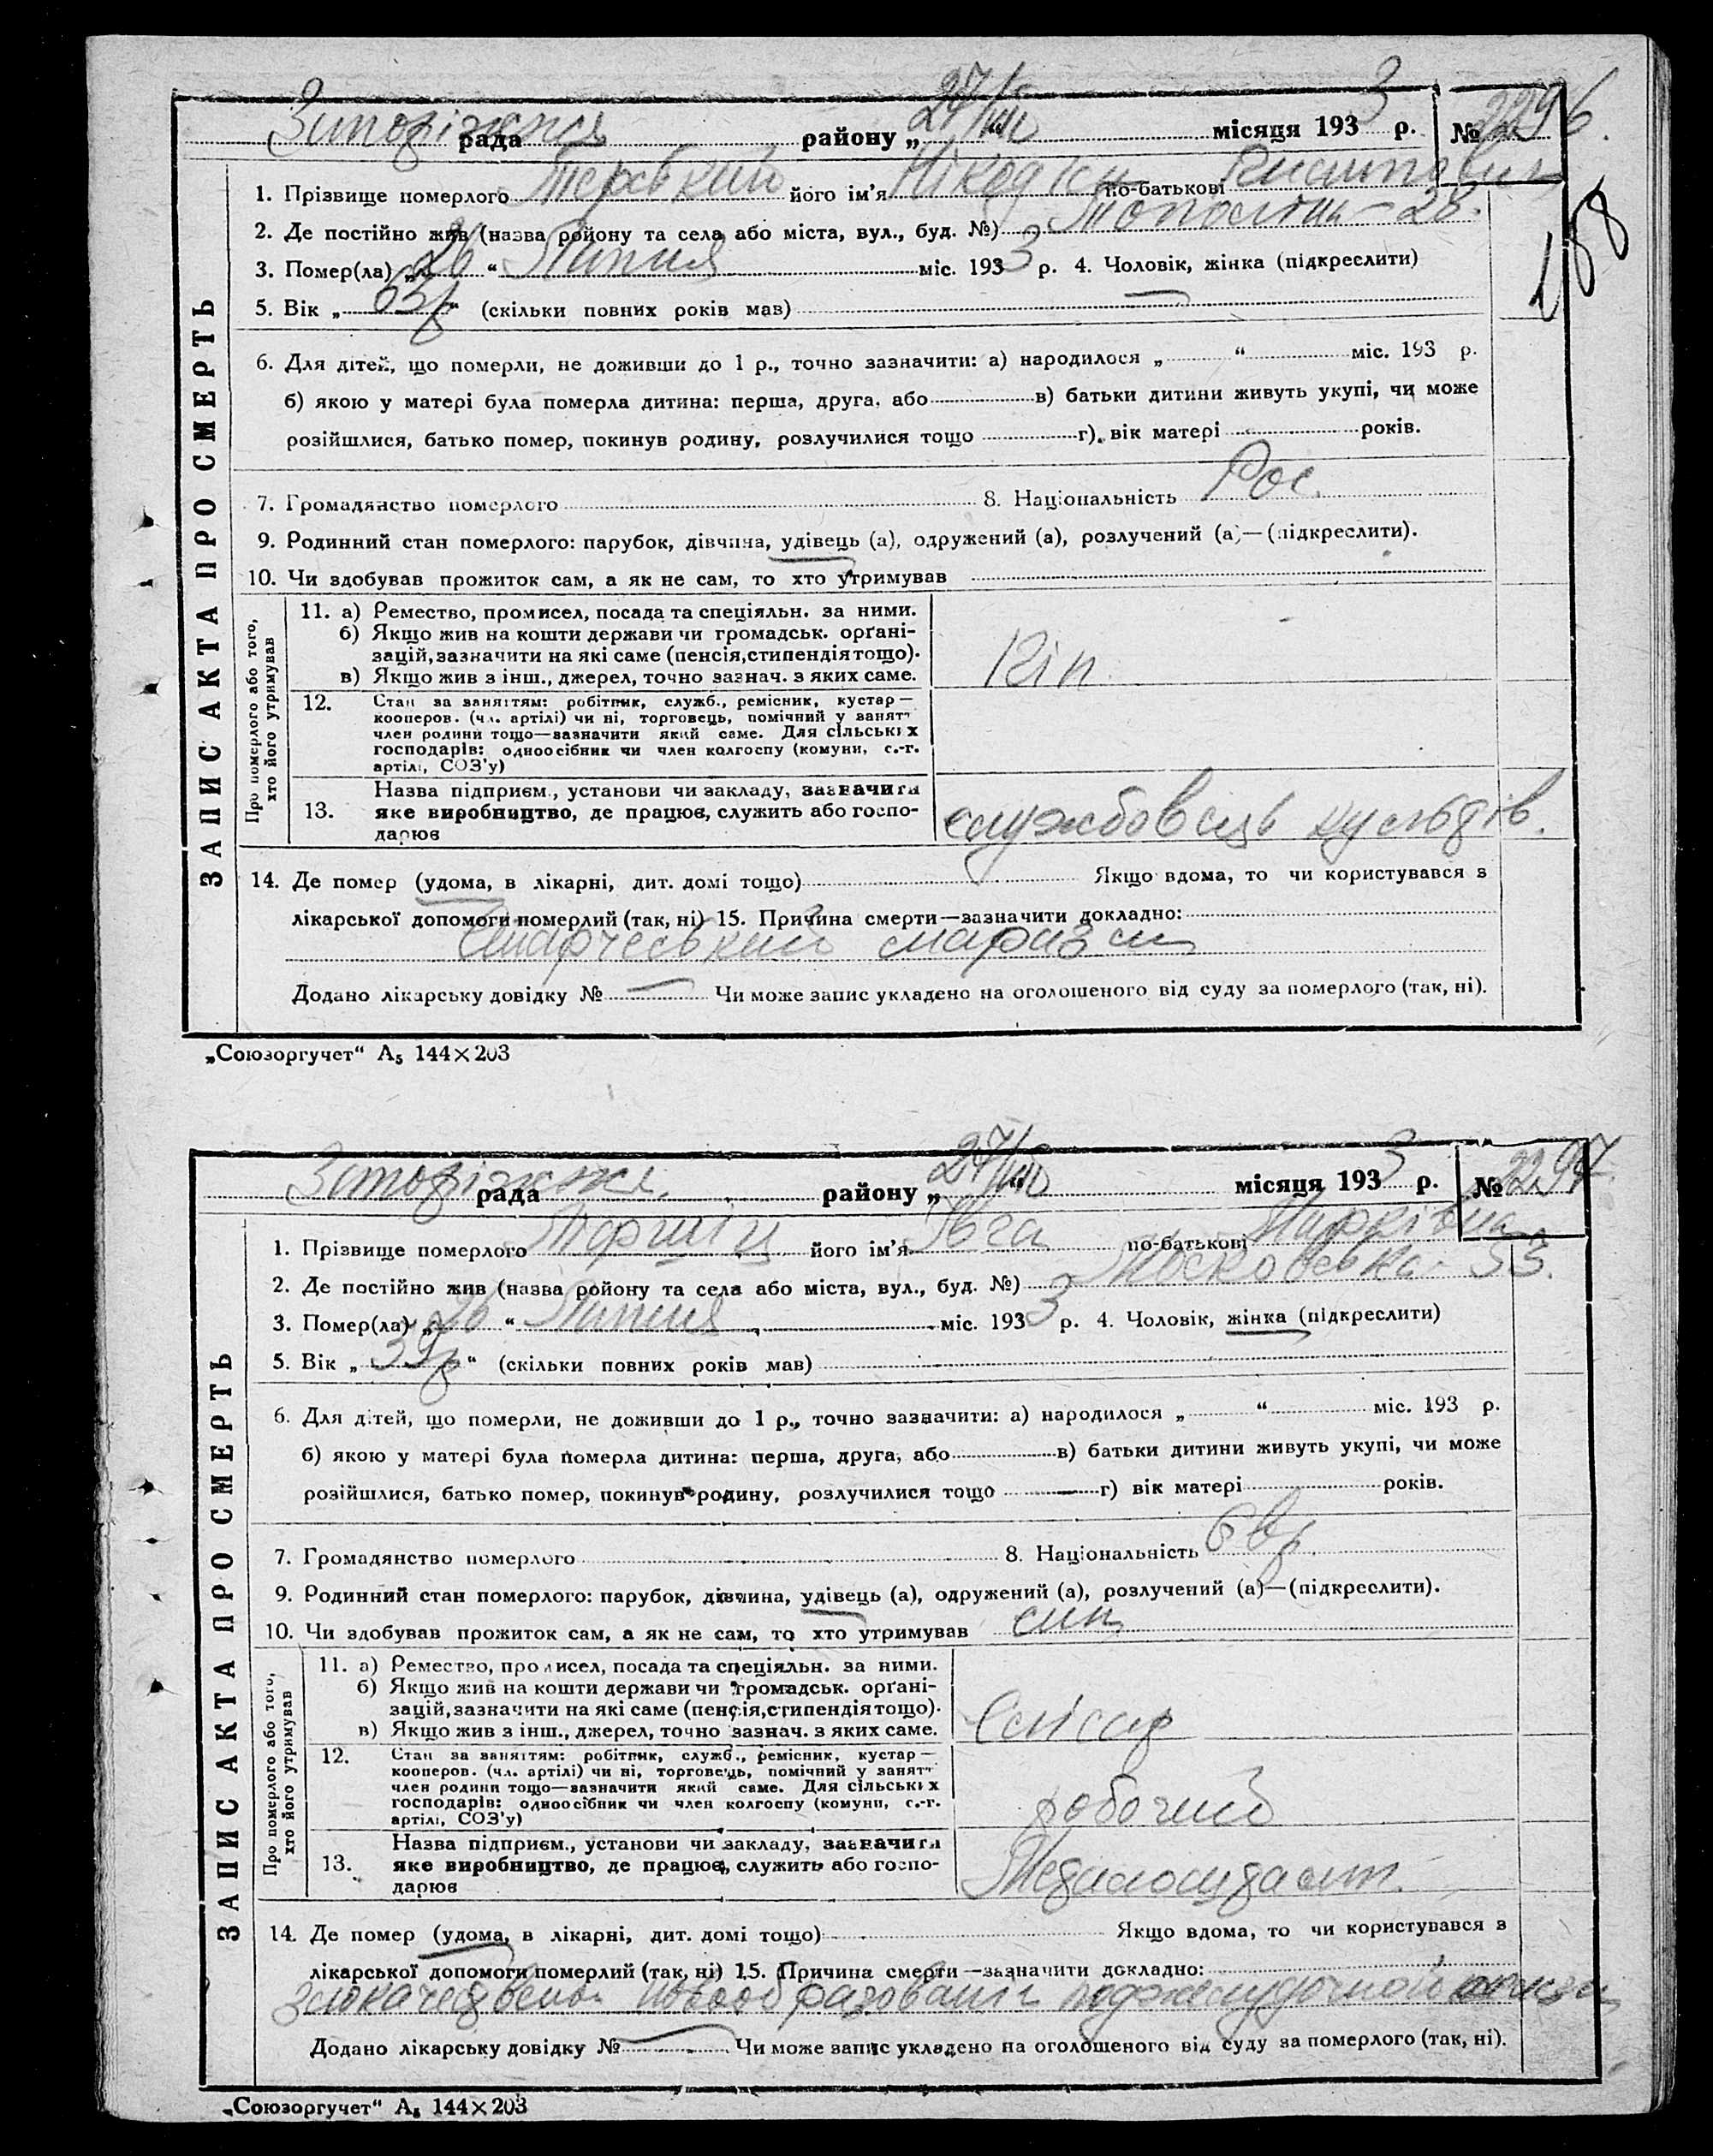 Запоріжжя рада району „27/VII“ місяця 1933 р. № 2296
188
ЗАПИС АКТА ПРО СМЕРТЬ
1. Прізвище померлого його ім'я Нікодим по-батькові
2. Де постійно жив (назва ройону та села або міста, вул., буд. №) 28.
3. Помер(ла) „26“ Липня міс. 1933 р. 4. Чоловік, жінка (підкреслити)
5. Вік „63 р“ (скільки повних років мав)
6. Для дітей, що померли, не доживши до 1 р., точно зазначити: а) народилося „ “ міс. 193 р.
б) якою у матері була померла дитина: перша, друга, або в) батьки дитини живуть укупі, чи може
розійшлися, батько помер, покинув родину, розлучилися тощо г) вік матері років.
7. Громадянство померлого 8. Національність Рос.
9. Родинний стан померлого: парубок, дівчина, удівець (а), одружений (а), розлучений (а)—(підкреслити).
10. Чи здобував прожиток сам, а як не сам, то хто утримував
Про померлого або того, хто його утримував
11. а) Ремество, промисел, посада та спеціяльн. за ними.
б) Якщо жив на кошти держави чи громадськ. орґані-
зацій, зазначити на які саме (пенсія, стипендія тощо).
в) Якщо жив з інш., джерел, точно зазнач. з яких саме.
12. Стан за заняттям: робітник, служб., ремісник, кустар —
кооперов. (чл. артілі) чи ні, торговець, помічний у занятт
член родини тощо—зазначити який саме. Для сільських
господарів: одноосібник чи член колгоспу (комуни, с.-г.
артілі, СОЗ'у)
13. Назва підприєм., установи чи закладу, зазначити
яке виробництво, де працює, служить або госпо-
дарює
службовець
14. Де помер (удома, в лікарні, дит. домі тощо) Якщо вдома, то чи користувався з
лікарської допомоги померлий (так, ні) 15. Причина смерти—зазначити докладно:
маразм
Додано лікарську довідку № Чи може запис укладено на оголошеного від суду за померлого (так, ні).
„Союзоргучет“ А5 144×203
Запоріжжя рада району „27/VII“ місяця 1933 р. № 2297
ЗАПИС АКТА ПРО СМЕРТЬ
1. Прізвище померлого його ім'я по-батькові Марківна
2. Де постійно жив (назва ройону та села або міста, вул., буд. №) Московська - 53.
3. Помер(ла) „26“ Липня міс. 1933 р. 4. Чоловік, жінка (підкреслити)
5. Вік „39 р“ (скільки повних років мав)
6. Для дітей, що померли, не доживши до 1 р., точно зазначити: а) народилося „ “ міс. 193 р.
б) якою у матері була померла дитина: перша, друга, або в) батьки дитини живуть укупі, чи може
розійшлися, батько помер, покинув родину, розлучилися тощо г) вік матері років.
7. Громадянство померлого 8. Національність Євр.
9. Родинний стан померлого: парубок, дівчина, удівець (а), одружений (а), розлучений (а)—(підкреслити).
10. Чи здобував прожиток сам, а як не сам, то хто утримував син
Про померлого або того, хто його утримував
11. а) Ремество, промисел, посада та спеціяльн. за ними.
б) Якщо жив на кошти держави чи громадськ. орґані-
зацій, зазначити на які саме (пенсія, стипендія тощо).
в) Якщо жив з інш., джерел, точно зазнач. з яких саме.
Слісар
12. Стан за заняттям: робітник, служб., ремісник, кустар —
кооперов. (чл. артілі) чи ні, торговець, помічний у занятт
член родини тощо—зазначити який саме. Для сільських
господарів: одноосібник чи член колгоспу (комуни, с.-г.
артілі, СОЗ'у)
робочий
13. Назва підприєм., установи чи закладу, зазначити
яке виробництво, де працює, служить або госпо-
дарює
14. Де помер (удома, в лікарні, дит. домі тощо) Якщо вдома, то чи користувався з
лікарської допомоги померлий (так, ні) 15. Причина смерти—зазначити докладно:
поджелудочной
Додано лікарську довідку № Чи може запис укладено на оголошеного від суду за померлого (так, ні).
„Союзоргучет“ А5 144×203